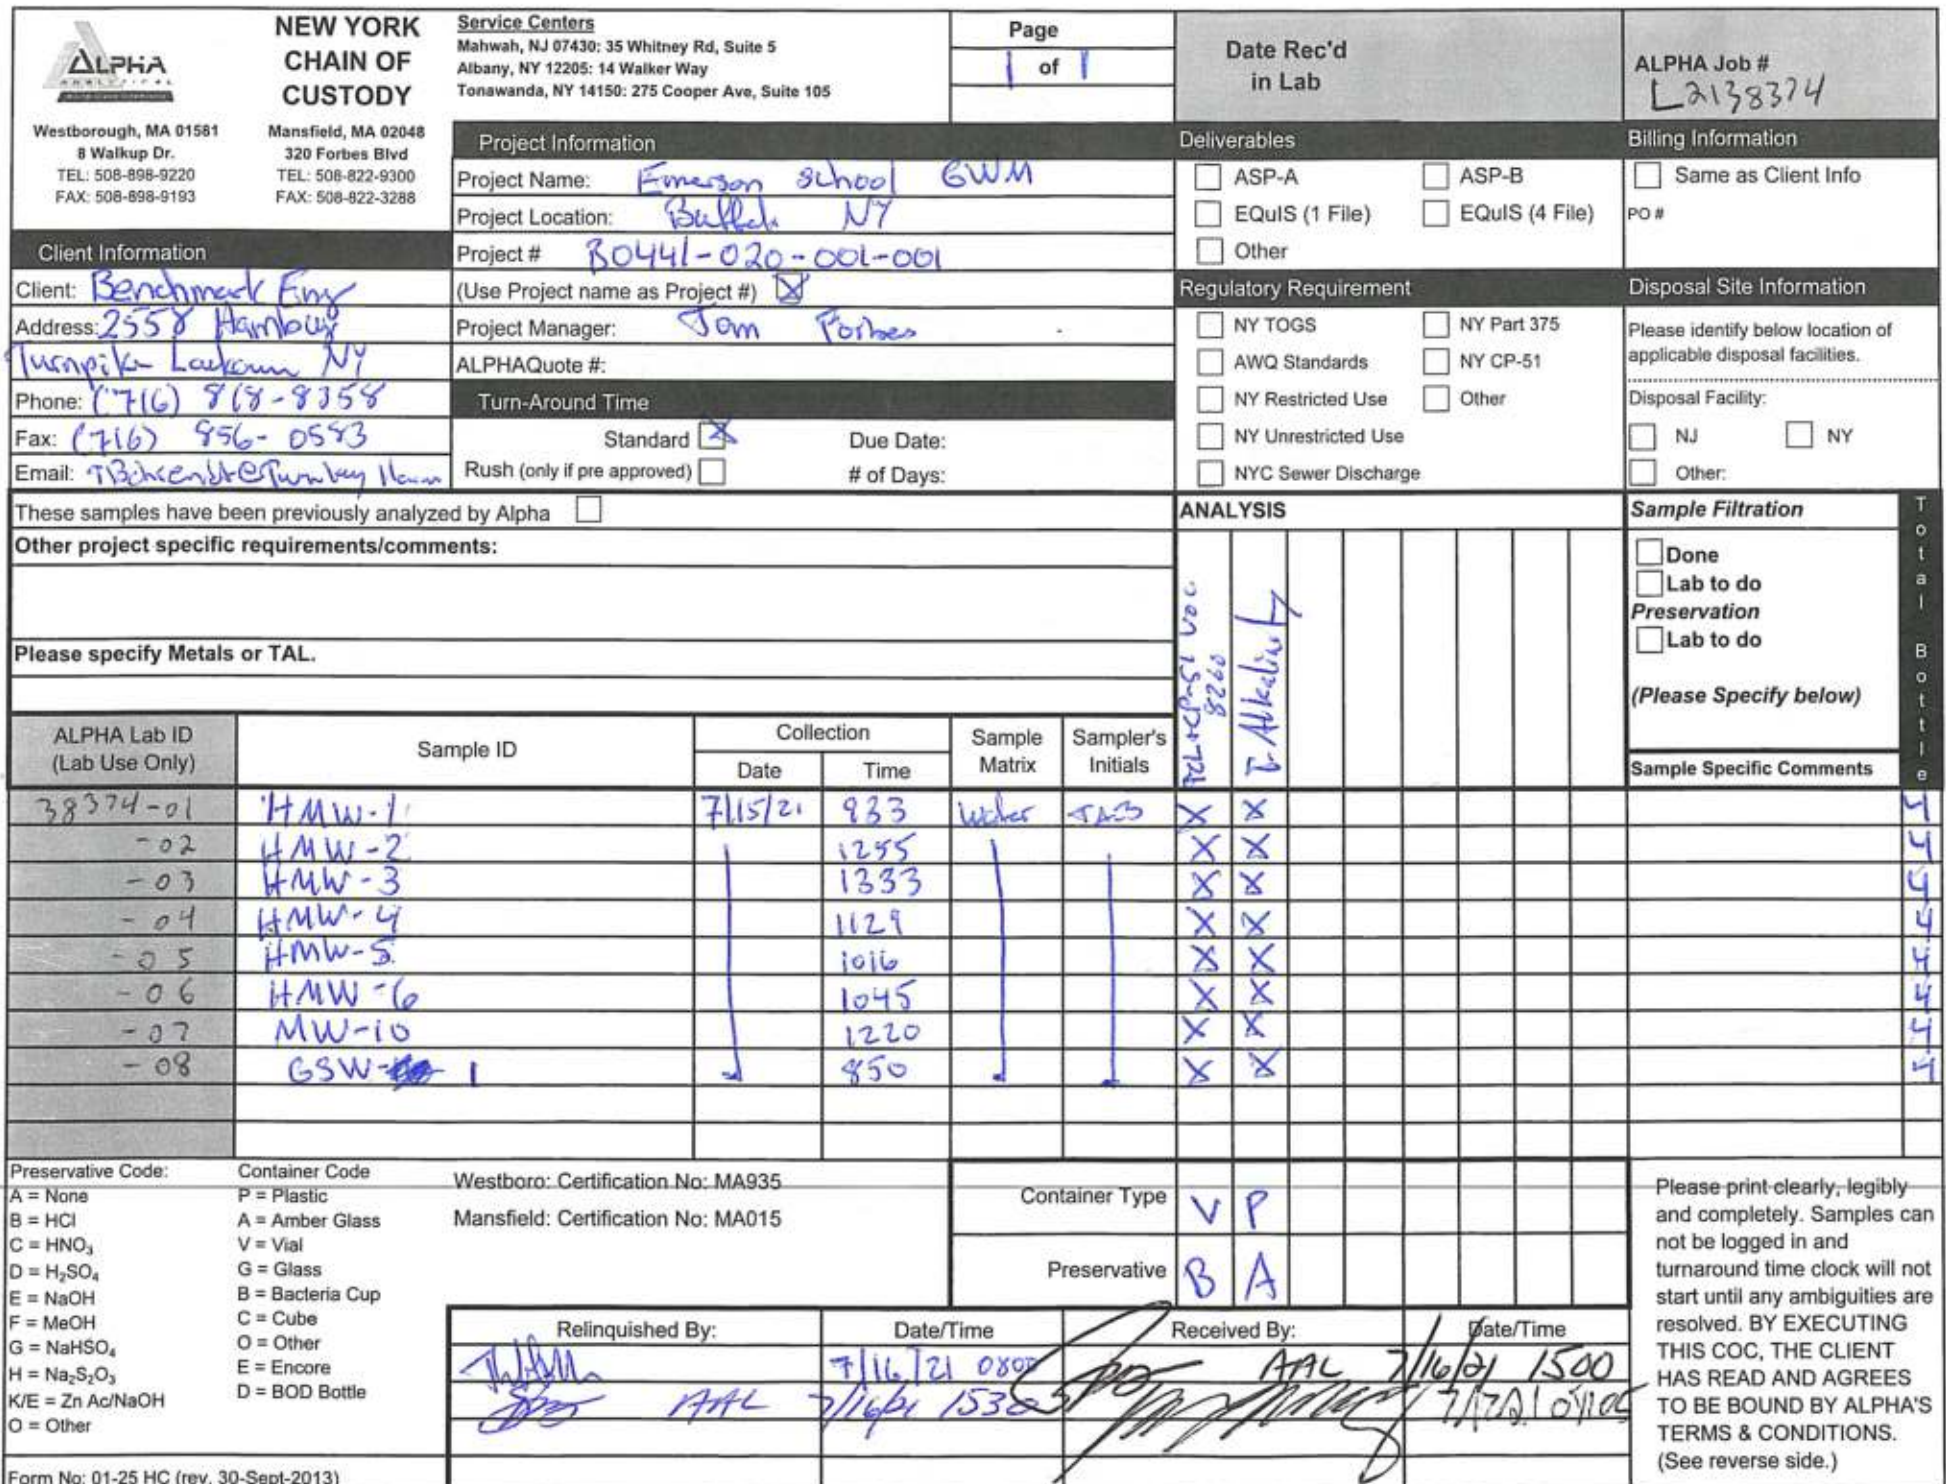 ALPHA
ANALYTICAL
NEW YORK
CHAIN OF
CUSTODY
Westborough, MA 01581
8 Walkup Dr.
TEL: 508-898-9220
FAX: 508-898-9193
Mansfield, MA 02048
320 Forbes Blvd
TEL: 508-822-9300
FAX: 508-822-3288
Service Centers
Mahwah, NJ 07430: 35 Whitney Rd, Suite 5
Albany, NY 12205: 14 Walker Way
Tonawanda, NY 14150: 275 Cooper Ave, Suite 105
Page
1 of 1
Date Rec'd
in Lab
ALPHA Job #
L2138374
Project Information
Project Name: Emerson School GWM
Project Location: Buffalo NY
Project # B0441-020-001-001
(Use Project name as Project #) X
Project Manager: Tom Forbes
ALPHAQuote #:
Turn-Around Time
Standard X Due Date:
Rush (only if pre approved) # of Days:
Client Information
Client: Benchmark Eng
Address: 2558 Hamburg
Turnpike NY
Phone: (716) 818-8358
Fax: (716) 856-0583
Email:
Deliverables
ASP-A ASP-B
EQuIS (1 File) EQuIS (4 File)
Other
Regulatory Requirement
NY TOGS NY Part 375
AWQ Standards NY CP-51
NY Restricted Use Other
NY Unrestricted Use
NYC Sewer Discharge
Billing Information
Same as Client Info
PO #
Disposal Site Information
Please identify below location of
applicable disposal facilities.
Disposal Facility:
NJ NY
Other:
These samples have been previously analyzed by Alpha
Other project specific requirements/comments:
Please specify Metals or TAL.
ANALYSIS
TCL+CP-51 VOC
8260
T. Alkalinity
Sample Filtration
Done
Lab to do
Preservation
Lab to do
(Please Specify below)
Total Bottle
ALPHA Lab ID
(Lab Use Only)
Sample ID
Collection
Date Time
Sample
Matrix
Sampler's
Initials
Sample Specific Comments
38374-01 HMW-1 7/15/21 933 Water TAB X X 4
-02 HMW-2 1255 X X 4
-03 HMW-3 1333 X X 4
-04 HMW-4 1129 X X 4
-05 HMW-5 1016 X X 4
-06 HMW-6 1045 X X 4
-07 MW-10 1220 X X 4
-08 GSW- 1 850 X X 4
Preservative Code:
A = None
B = HCl
C = HNO₃
D = H₂SO₄
E = NaOH
F = MeOH
G = NaHSO₄
H = Na₂S₂O₃
K/E = Zn Ac/NaOH
O = Other
Container Code
P = Plastic
A = Amber Glass
V = Vial
G = Glass
B = Bacteria Cup
C = Cube
O = Other
E = Encore
D = BOD Bottle
Westboro: Certification No: MA935
Mansfield: Certification No: MA015
Container Type V P
Preservative B A
Relinquished By: Date/Time Received By: Date/Time
7/16/21 0800 AAL 7/16/21 1500
AAL 7/16/21 1530
Please print clearly, legibly
and completely. Samples can
not be logged in and
turnaround time clock will not
start until any ambiguities are
resolved. BY EXECUTING
THIS COC, THE CLIENT
HAS READ AND AGREES
TO BE BOUND BY ALPHA'S
TERMS & CONDITIONS.
(See reverse side.)
Form No: 01-25 HC (rev. 30-Sept-2013)